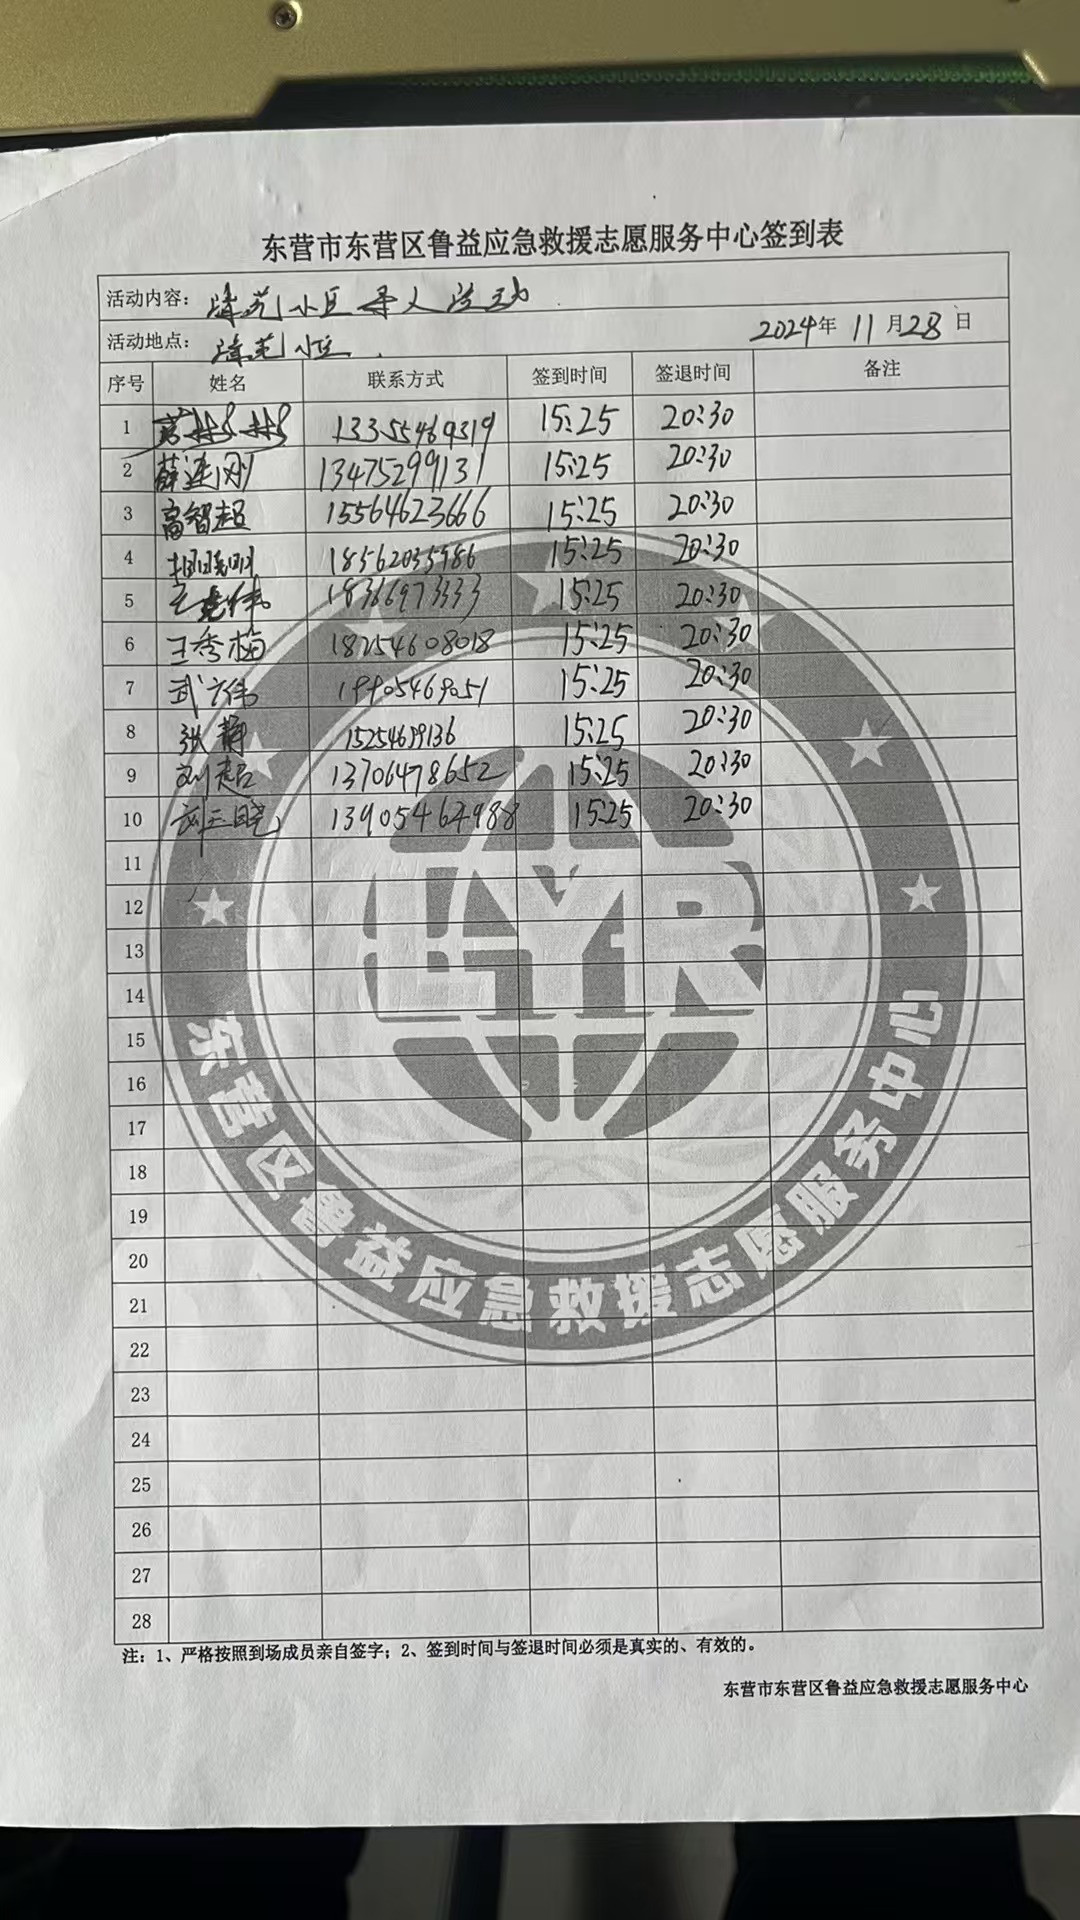 东营市东营区鲁益应急救援志愿服务中心签到表
活动内容： 小区寻人活动
活动地点： 小区 2024年 11月28日
序号 姓名 联系方式 签到时间 签退时间 备注
1 13355469319 15:25 20:30
2 薛连刚 13475299131 15:25 20:30
3 高智超 15564623666 15:25 20:30
4 胡晓明 18562035986 15:25 20:30
5 18366973333 15:25 20:30
6 王秀梅 18254608018 15:25 20:30
7 武广伟 15:25 20:30
8 张静 15254619136 15:25 20:30
9 刘超 13706478652 15:25 20:30
10 13905464988 15:25 20:30
11
12
13
14
15
16
17
18
19
20
21
22
23
24
25
26
27
28
LYR
东营区鲁益应急救援志愿服务中心
注：1、严格按照到场成员亲自签字；2、签到时间与签退时间必须是真实的、有效的。
东营市东营区鲁益应急救援志愿服务中心